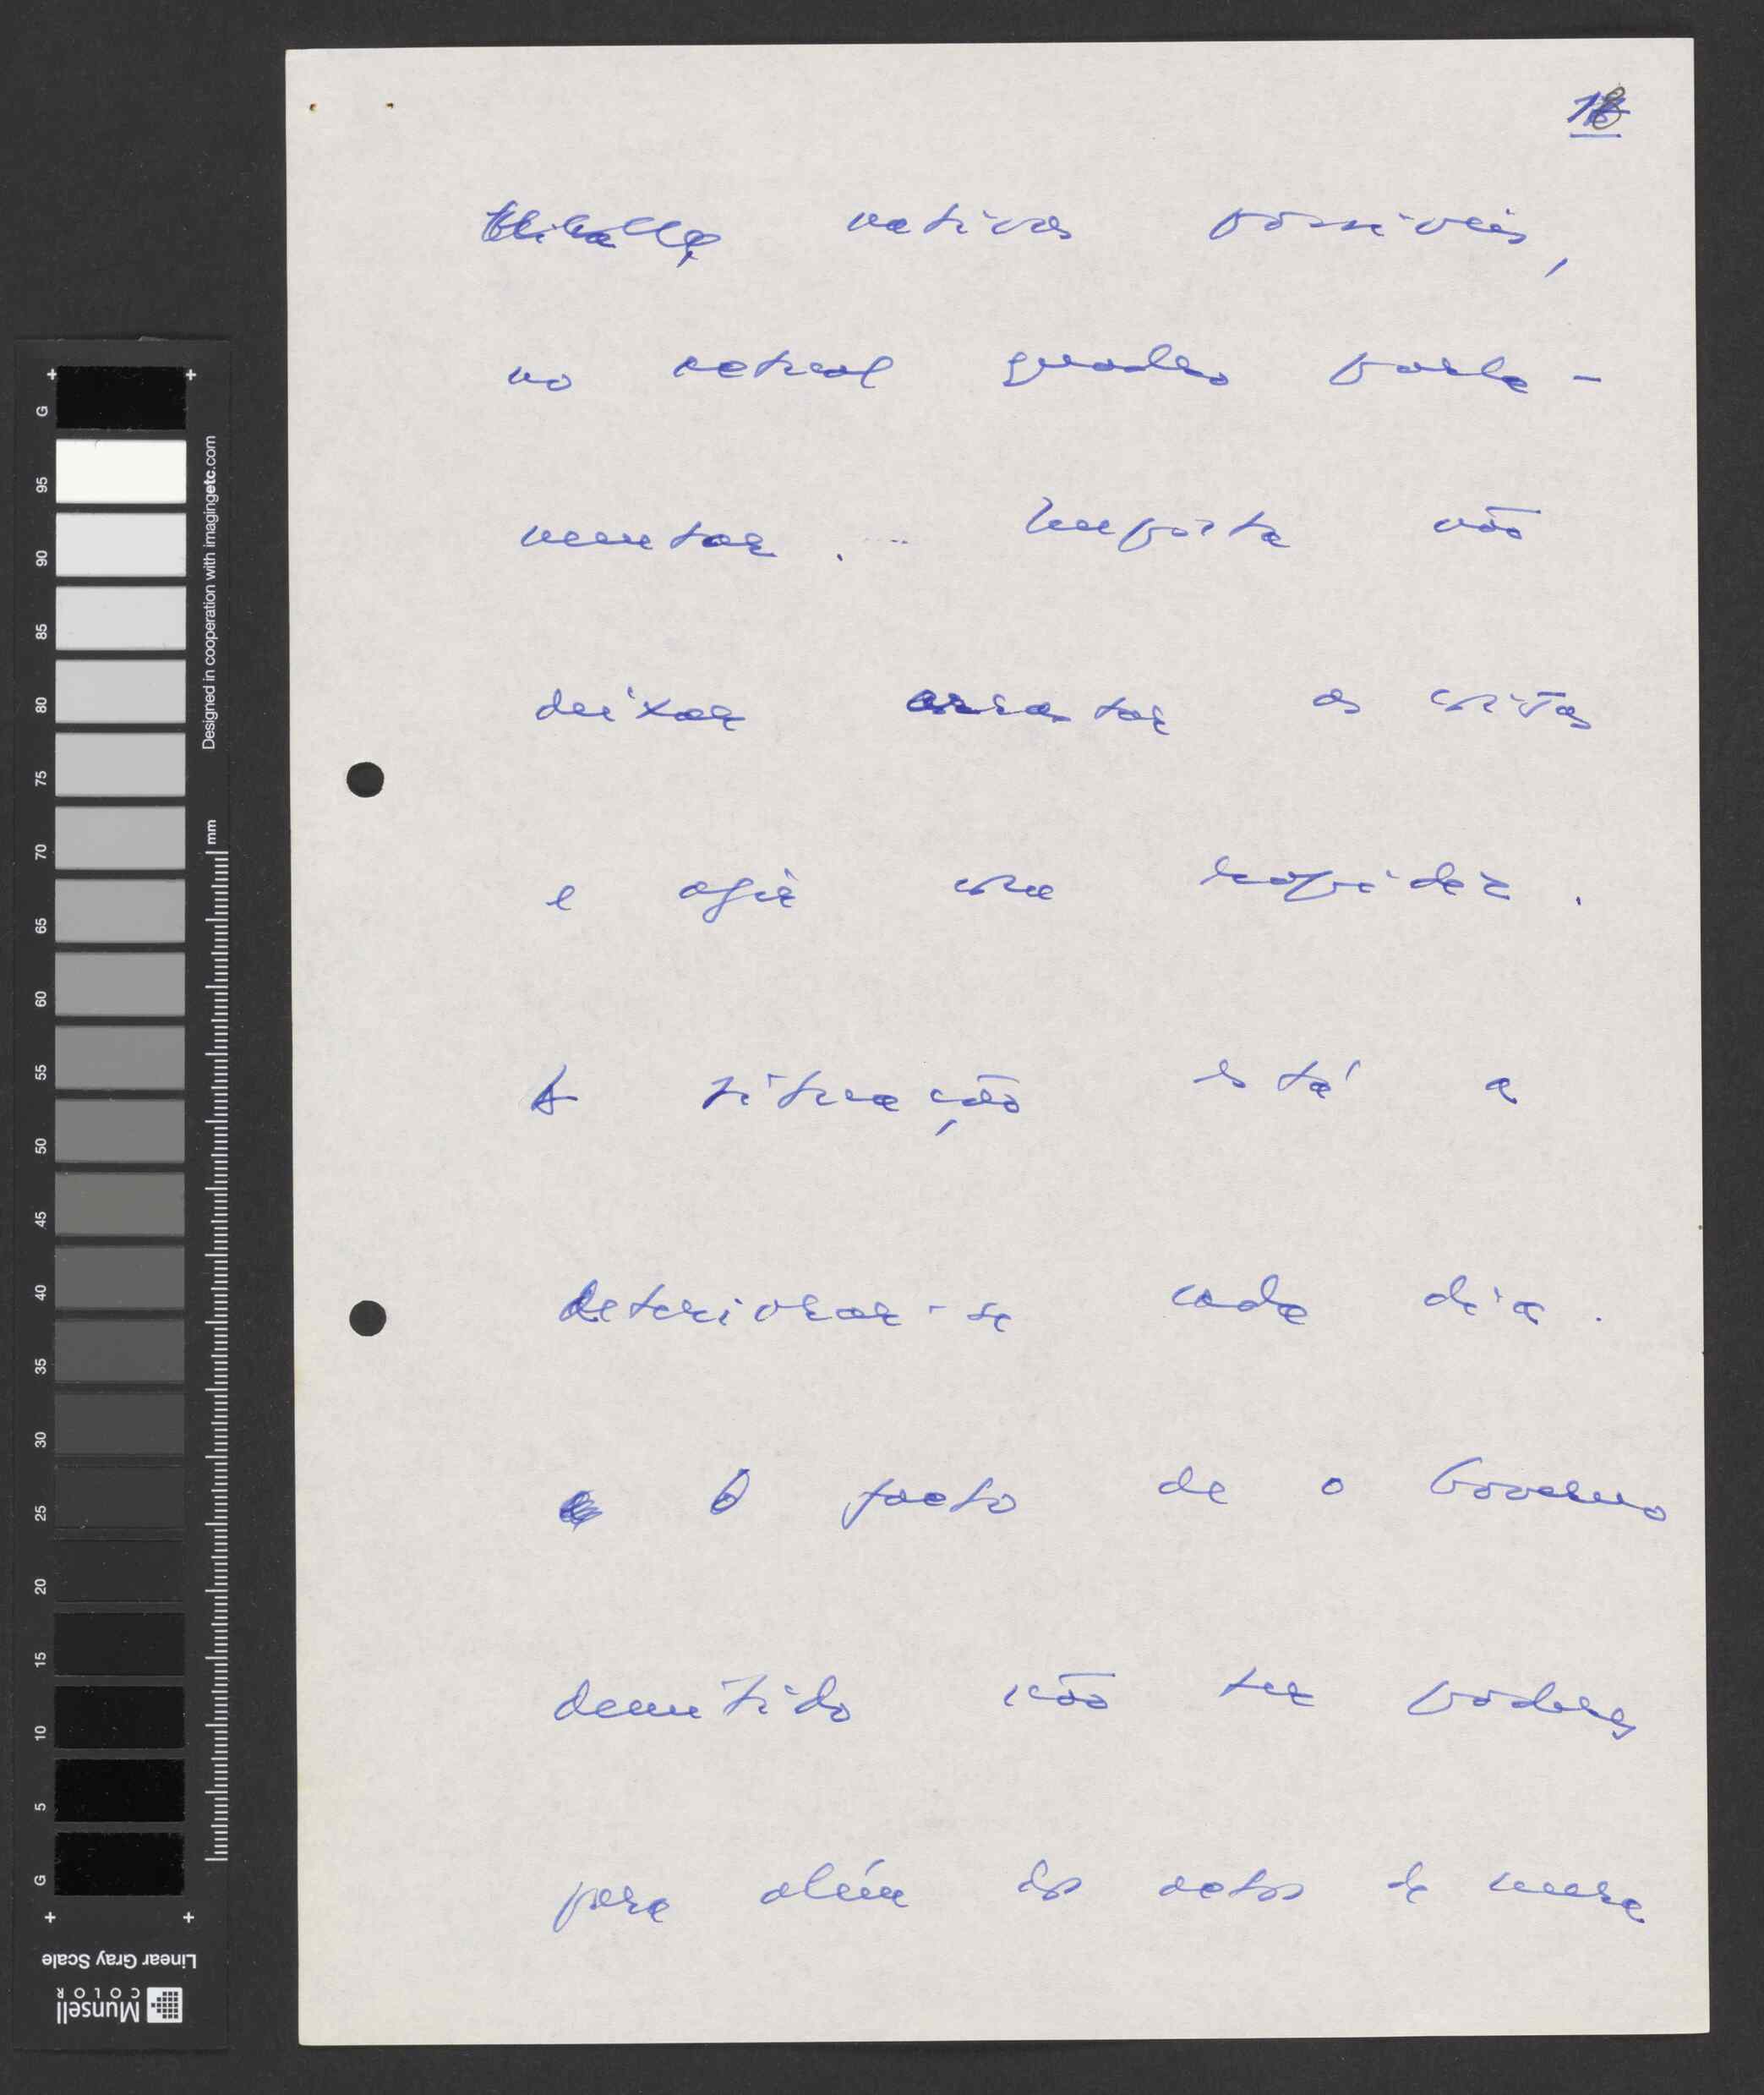 18
nativas possíveis,
no actual quadro parla-
mentar. Importa não
deixar arrastar as coisas
e agir com rapidez.
A situação está a
deteriorar-se cada dia.
O facto de o Governo
demitido não ter poderes
para além dos actos de mera
G
95
90
85
80
75
70
65
60
55
50
45
40
35
30
25
20
15
10
5
G
Designed in cooperation with imagingetc.com
mm
Linear Gray Scale
Munsell
COLOR